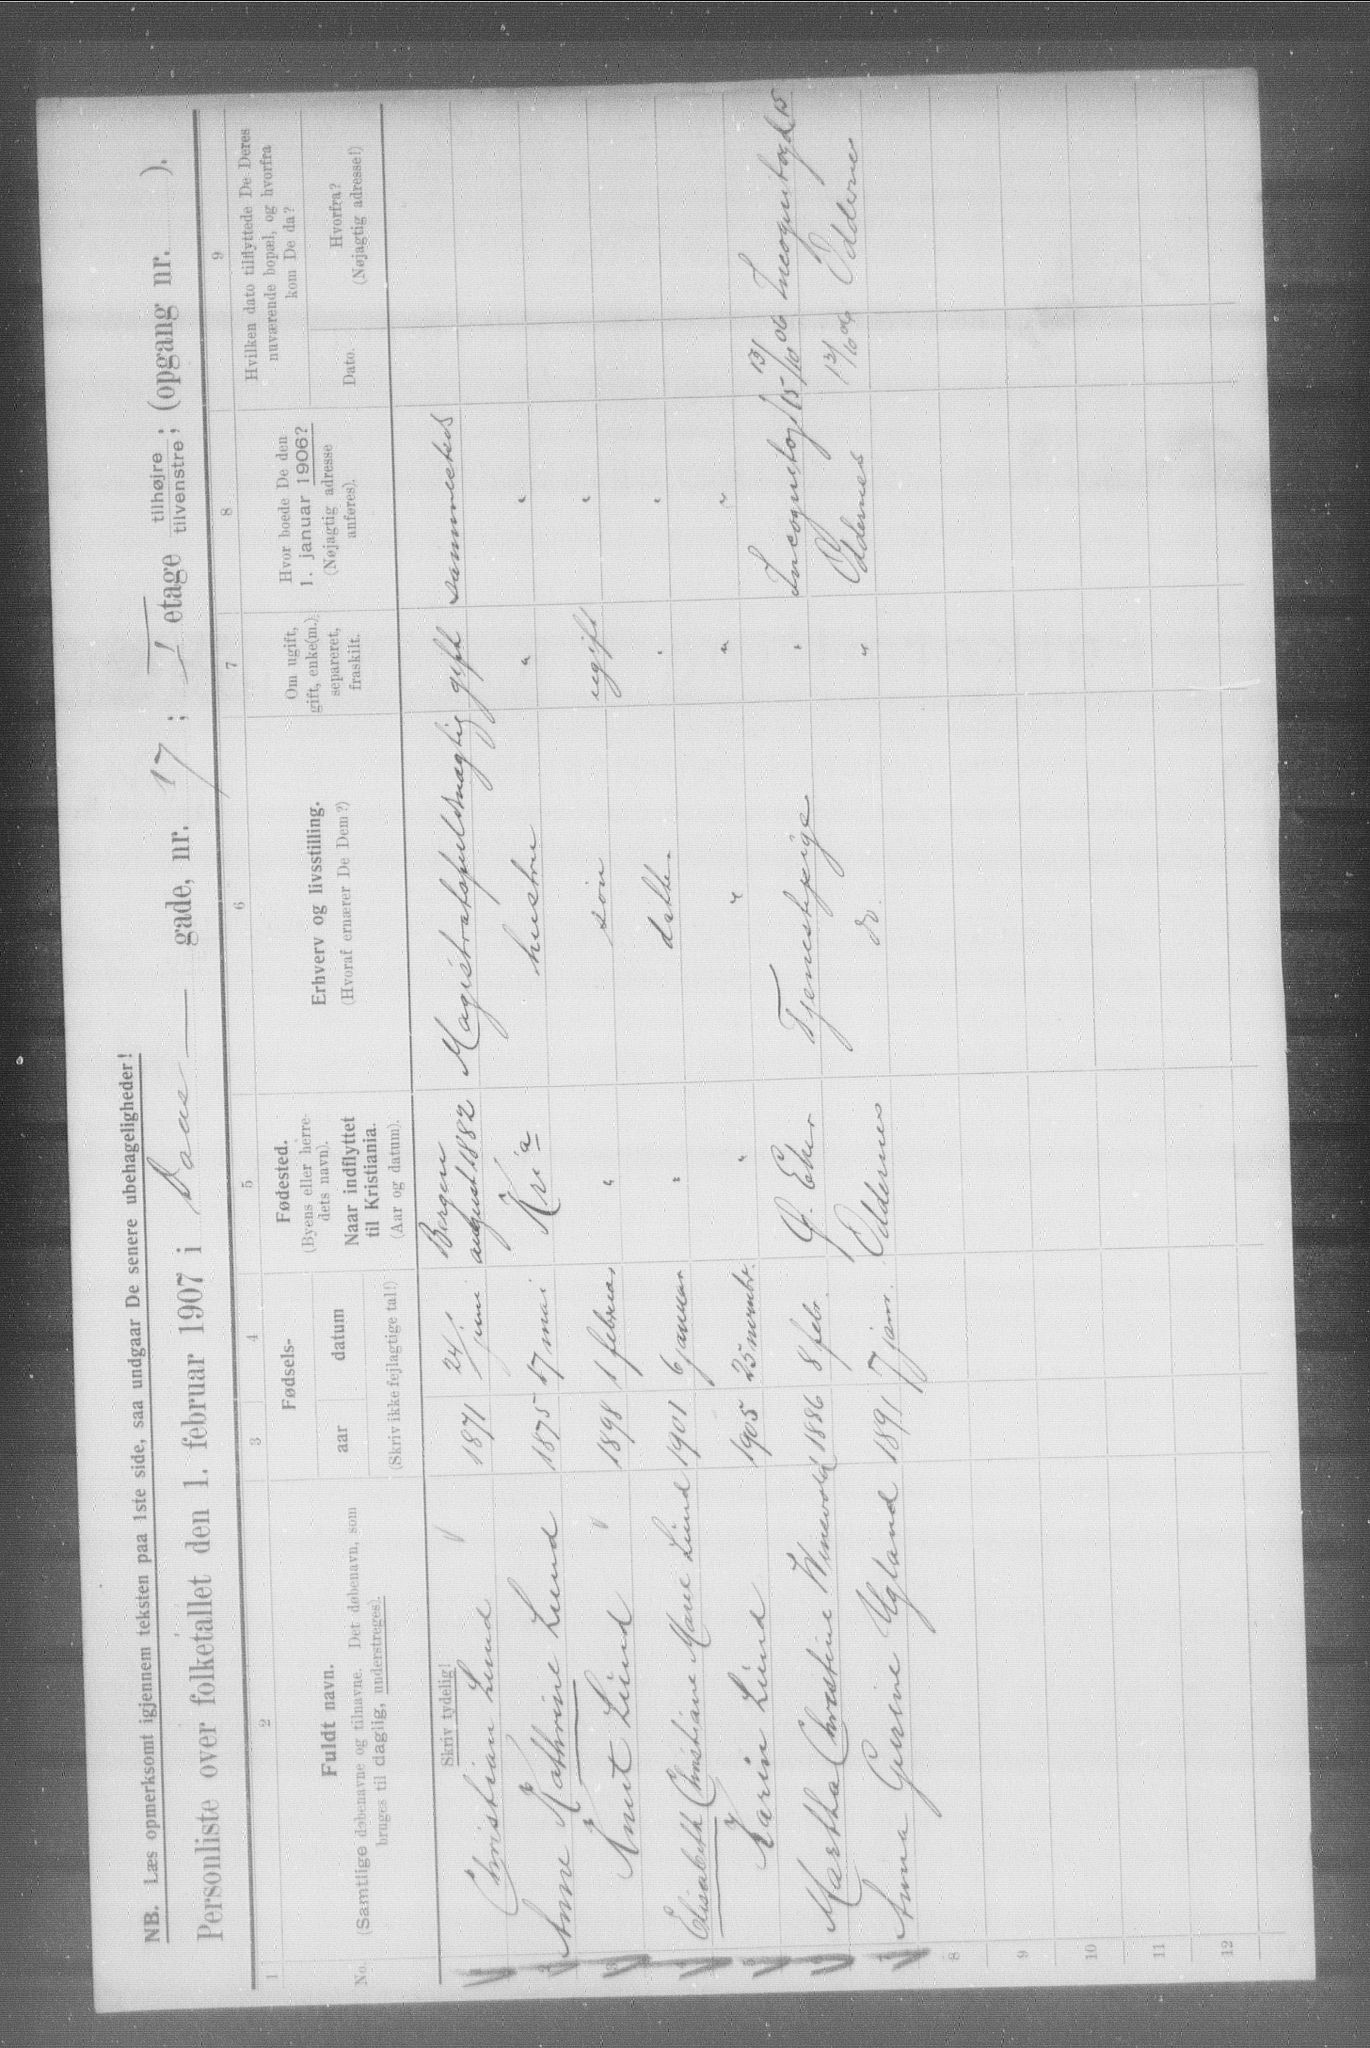 NB. Læs opmerksomt igjennem teksten paa 1ste side, saa undgaar De senere ubehageligheder!
Personliste over folketallet den 1. februar 1907 i Daas gade, nr. 17 ; I etage tilhøjre ; tilvenstre ; (opgang nr. ).
1 2 3 4 5 6 7 8 9
No.
Fuldt navn.
(Samtlige døbenavne og tilnavne. Det døbenavn, som
bruges til daglig, understreges).
Fødsels-
aar datum
(Skriv ikke fejlagtige tal!)
Fødested.
(Byens eller herre-
dets navn).
Naar indflyttet
til Kristiania.
(Aar og datum).
Erhverv og livsstilling.
(Hvoraf ernærer De Dem?)
Om ugift,
gift, enke(m.)
separeret,
fraskilt.
Hvor boede De den
1. januar 1906?
(Nøjagtig adresse
anføres).
Hvilken dato tilflyttede De Deres
nuværende bopæl, og hvorfra
kom De da?
Dato.
Hvorfra?
(Nøjagtig adresse!)
Skriv tydelig!
1 Christian Lund 1871 24/ juni Bergen august 1882 Magistratsfuldmægtig gift sammesteds
2 Anne Kathrine Lund 1875 17 mai Kria hustru " "
3 Knut Lund 1898 1 februar " søn ugift "
4 Elisabeth Christiane Marie Lund 1901 6 januar " datter " "
5 Karin Lund 1905 25 novembr. " " " "
6 Martha Christine 1886 8 febr. Ø. Eker Tjenestepige " Incognitogd 15 13/10 06 Incognitogd 15
7 Anna Gurine Ugland 1891 7 janr. Oddernes do. " Oddernes 13/10 06 Oddernes
8
9
10
11
12